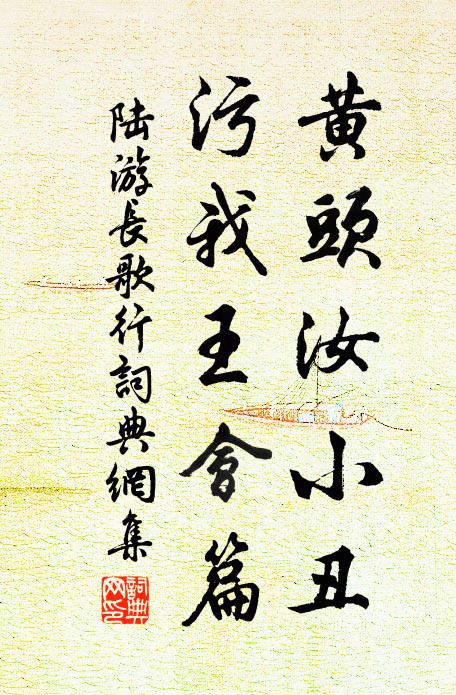 黄頭汝小丑
污我王會篇
陸游長歌行詞典網集
詞典网印